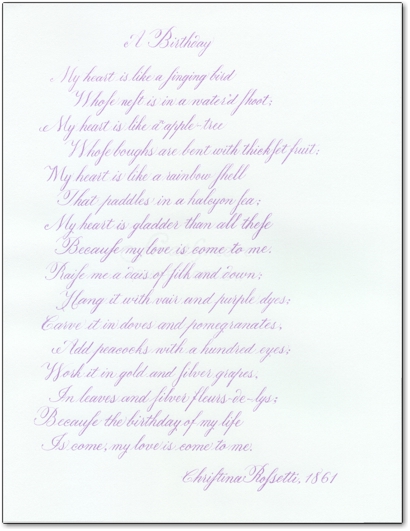 A Birthday
My heart is like a ſinging bird
Whoſe neſt is in a water'd ſhoot;
My heart is like an apple-tree
Whoſe boughs are bent with thickſet fruit;
My heart is like a rainbow ſhell
That paddles in a halcyon ſea;
My heart is gladder than all theſe
Becauſe my love is come to me.
Raiſe me a dais of ſilk and down;
Hang it with vair and purple dyes;
Carve it in doves and pomegranates,
Add peacocks with a hundred eyes;
Work it in gold and ſilver grapes,
In leaves and ſilver fleurs-de-lys;
Becauſe the birthday of my life
Is come, my love is come to me.
Chriſtina Roſsetti, 1861